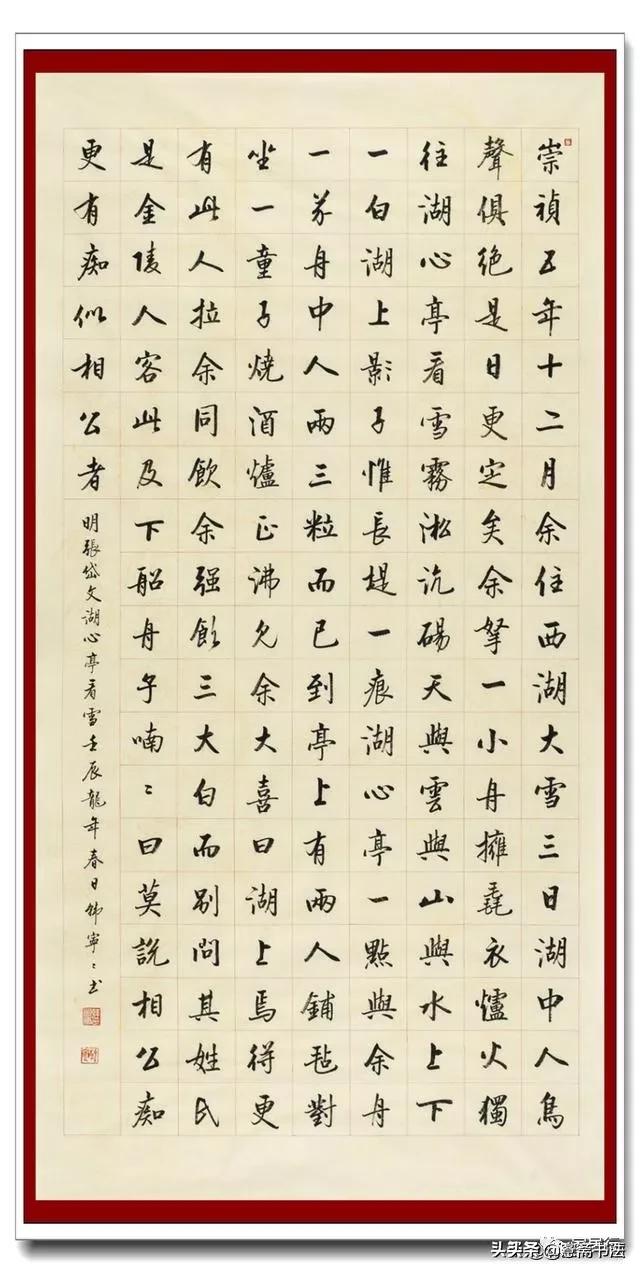 崇禎五年十二月余住西湖大雪三日湖中人鳥
聲俱絕是日更定矣余拏一小舟擁毳衣爐火獨
往湖心亭看雪霧淞沆碭天與雲與山與水上下
一白湖上影子惟長堤一痕湖心亭一點與余舟
一芥舟中人兩三粒而已到亭上有兩人鋪毡對
坐一童子燒酒爐正沸見余大喜曰湖上焉得更
有此人拉余同飲余强飲三大白而別問其姓氏
是金陵人客此及下船舟子喃〻曰莫說相公痴
更有痴似相公者
明張岱文湖心亭看雪壬辰龍年春日韓寧〻书
头条@斋书法